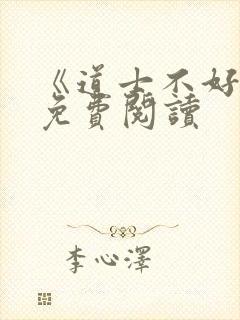 《道士不好
免費閱讀
李心澤